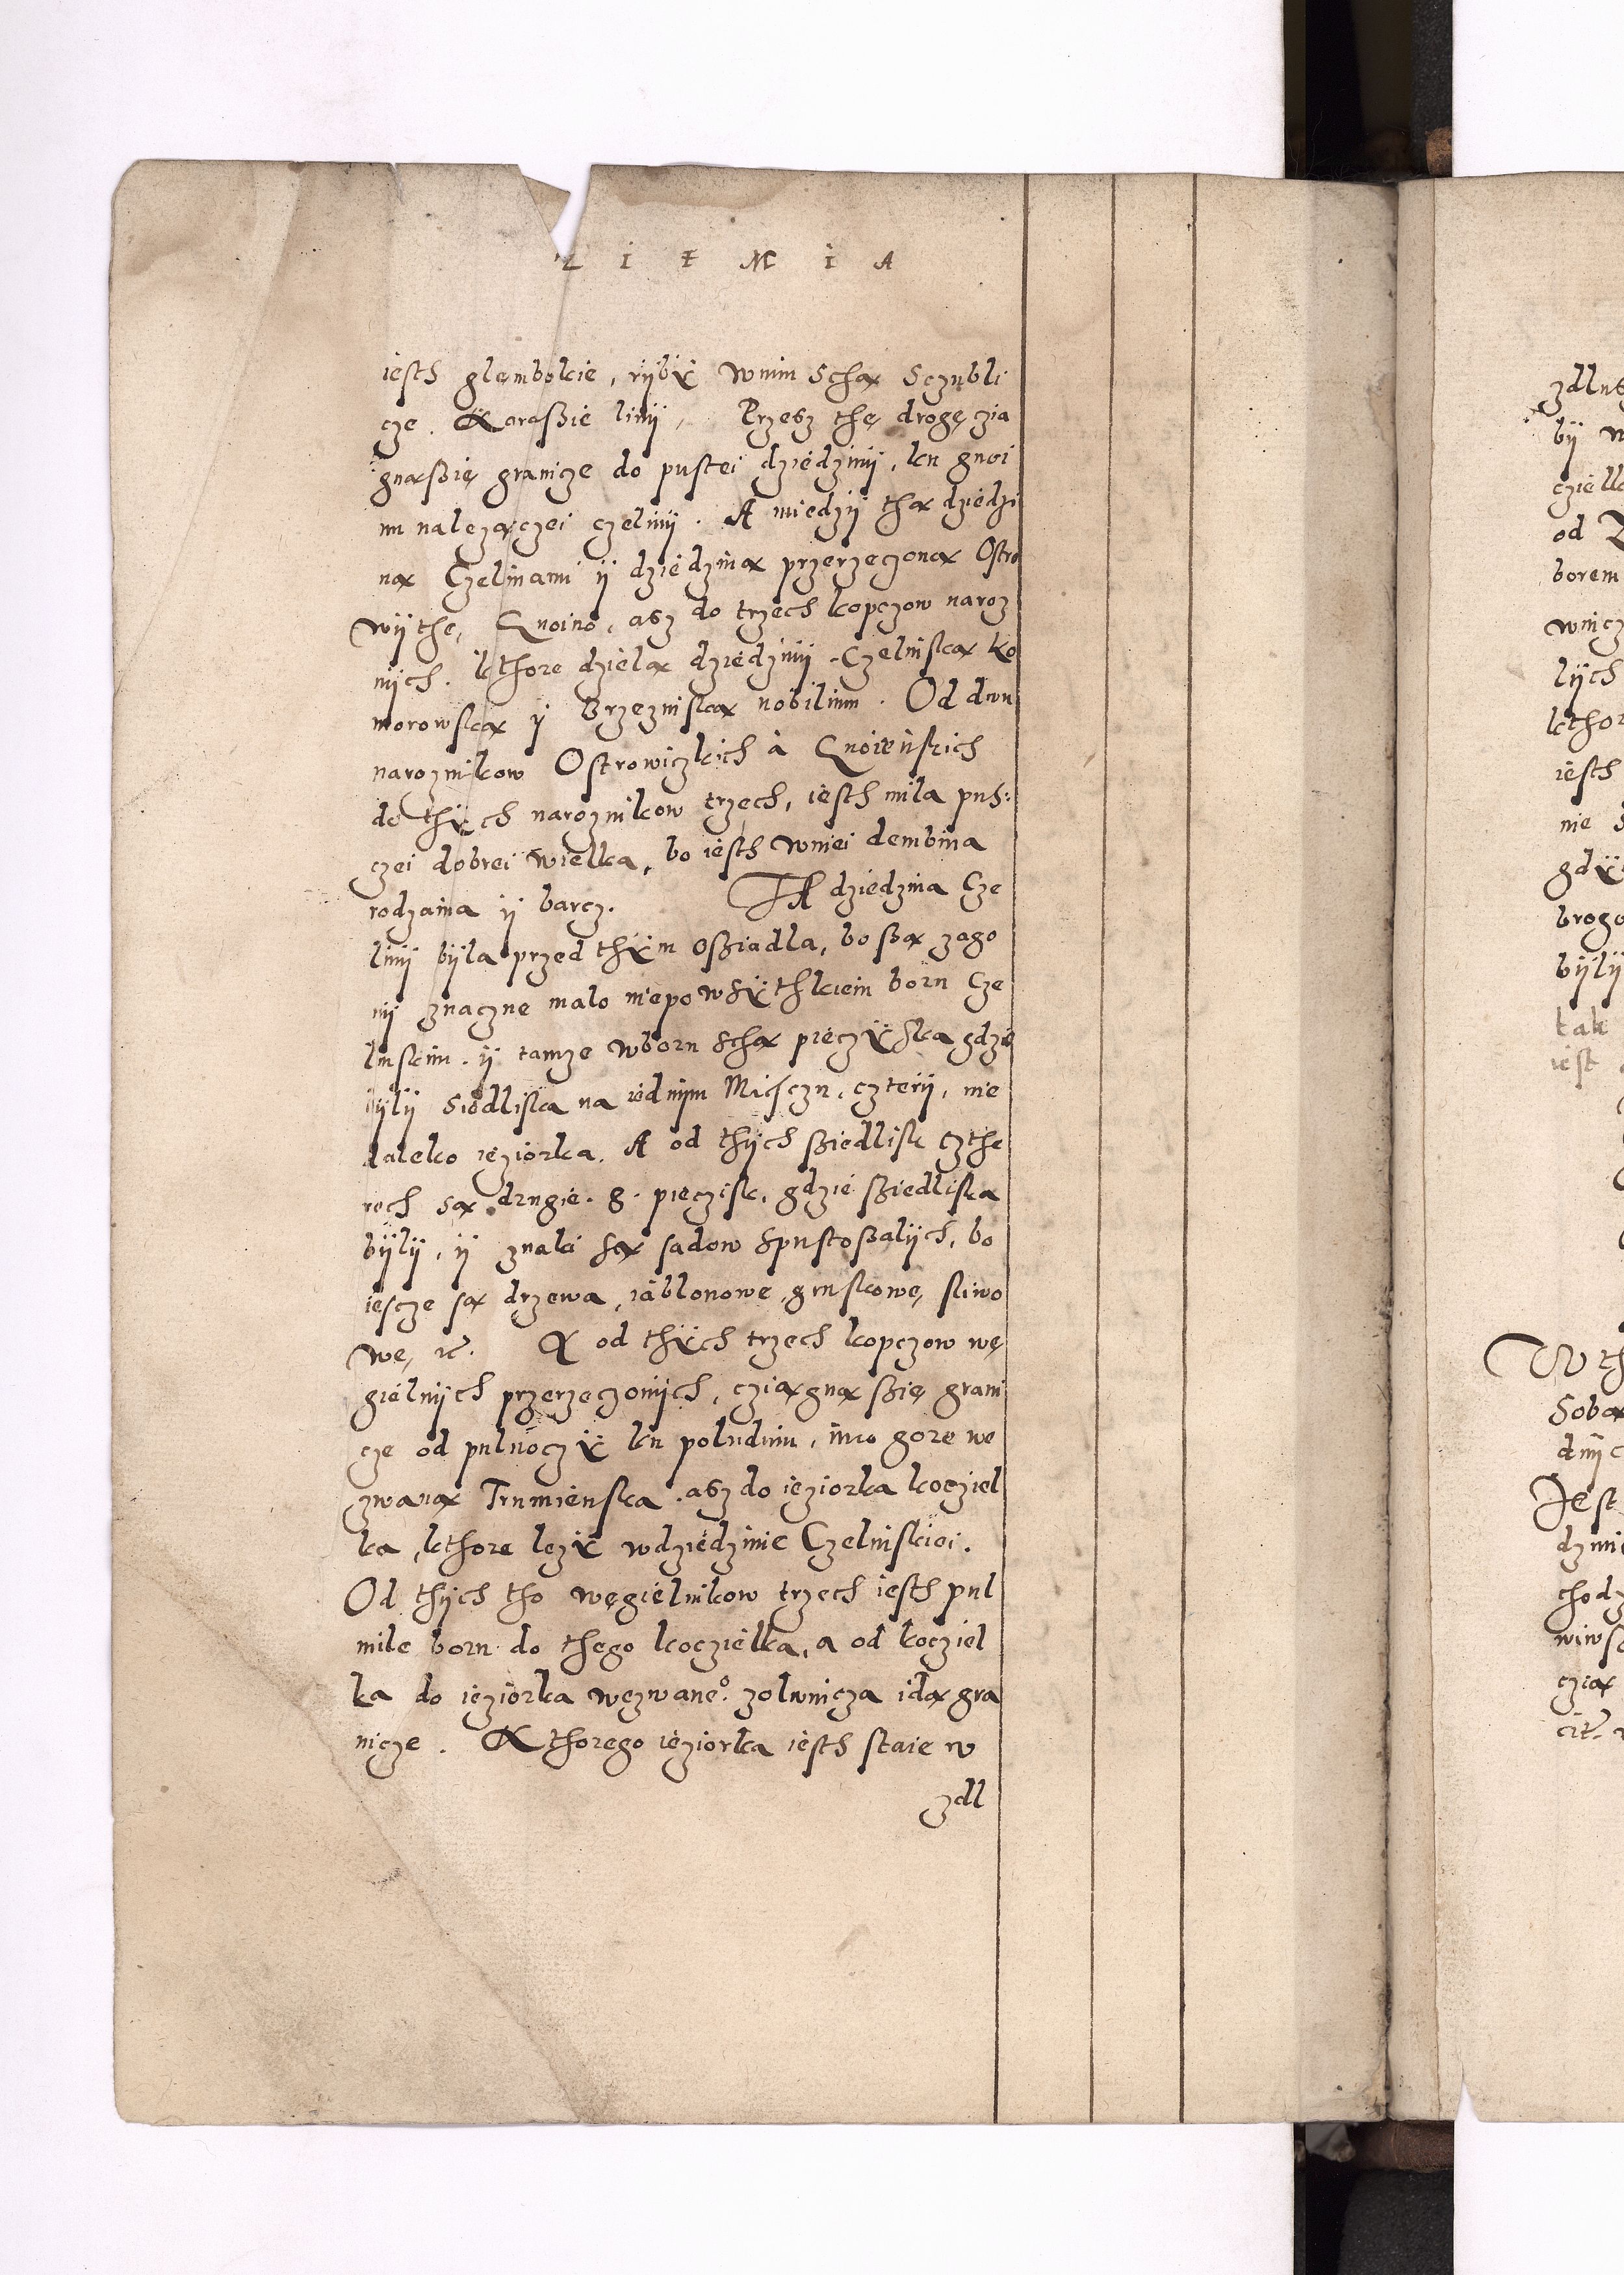 Z I E M I A
iesth glembokie, rybÿ w nim schą sczubli
cze. Karaßie linÿ, Przesz thę drogę czią
gną ßię granicze do pustei dziedzinÿ, ku gnoi
nu należączei czelinÿ. A miedzÿ thą dziedzi
ną Czelinami ÿ dziedziną przerzeczoną Ostro
wÿthe, Gnoino, asz do trzech kopczow naroz
nÿch. kthore dzielą dziedzinÿ. Czelniską Ko
morowską ÿ Brzezniską nobilium. Od dwu
naroznikow Ostrowiczkich à Gnoieńskich
do thÿch naroznikow trzech, iesth mila pus:
czei dobrei wielka, bo iesth w niei dembina
rodzaina ÿ barcz. TA dziedzina Cze
linÿ bÿla przed thÿm oßiadla, bo ßą zago
nÿ znaczne malo nie po wsÿthkiem boru Cze
linskim. ÿ tamze w boru schą pieczÿska gdzie
bÿlÿ siedliska na iednÿm Mieſczu, czterÿ, nie
daleko ieziorka. A od thÿch ßiedlisk czthe
rech są drugie. 8. piecżisk, gdzie ßiedliska
bÿlÿ, ÿ znaki są sadow spustoßalÿch, bo
iescze są drzewa, iablonowe, gruskowe, sliwo
we, ꝛc. A od thÿch trzech kopczow wę
gielnÿch przerzeczonÿch, cziągną ßię grani
cze od pulnoczÿ ku poludniu, imo gore we
zwaną Trumienska. asz do ieziorka kocziel
ka, kthore lezÿ w dziedzinie Czelniskiei.
Od thÿch tho węgielnikow trzech iesth pul
mile boru do thego kocziełka, a od kocziel
ka do ieziorka wezwaneº. zolwnicza idą gra
nicze. Kthorego ieziorka iesth staie w
zdl
zdlus
bÿ
od
borem
lÿch
kthor
iesth
nie
brogo
bÿlÿ
tak
iest
W th
Sobą
dnÿc
Jest
chodz
czią